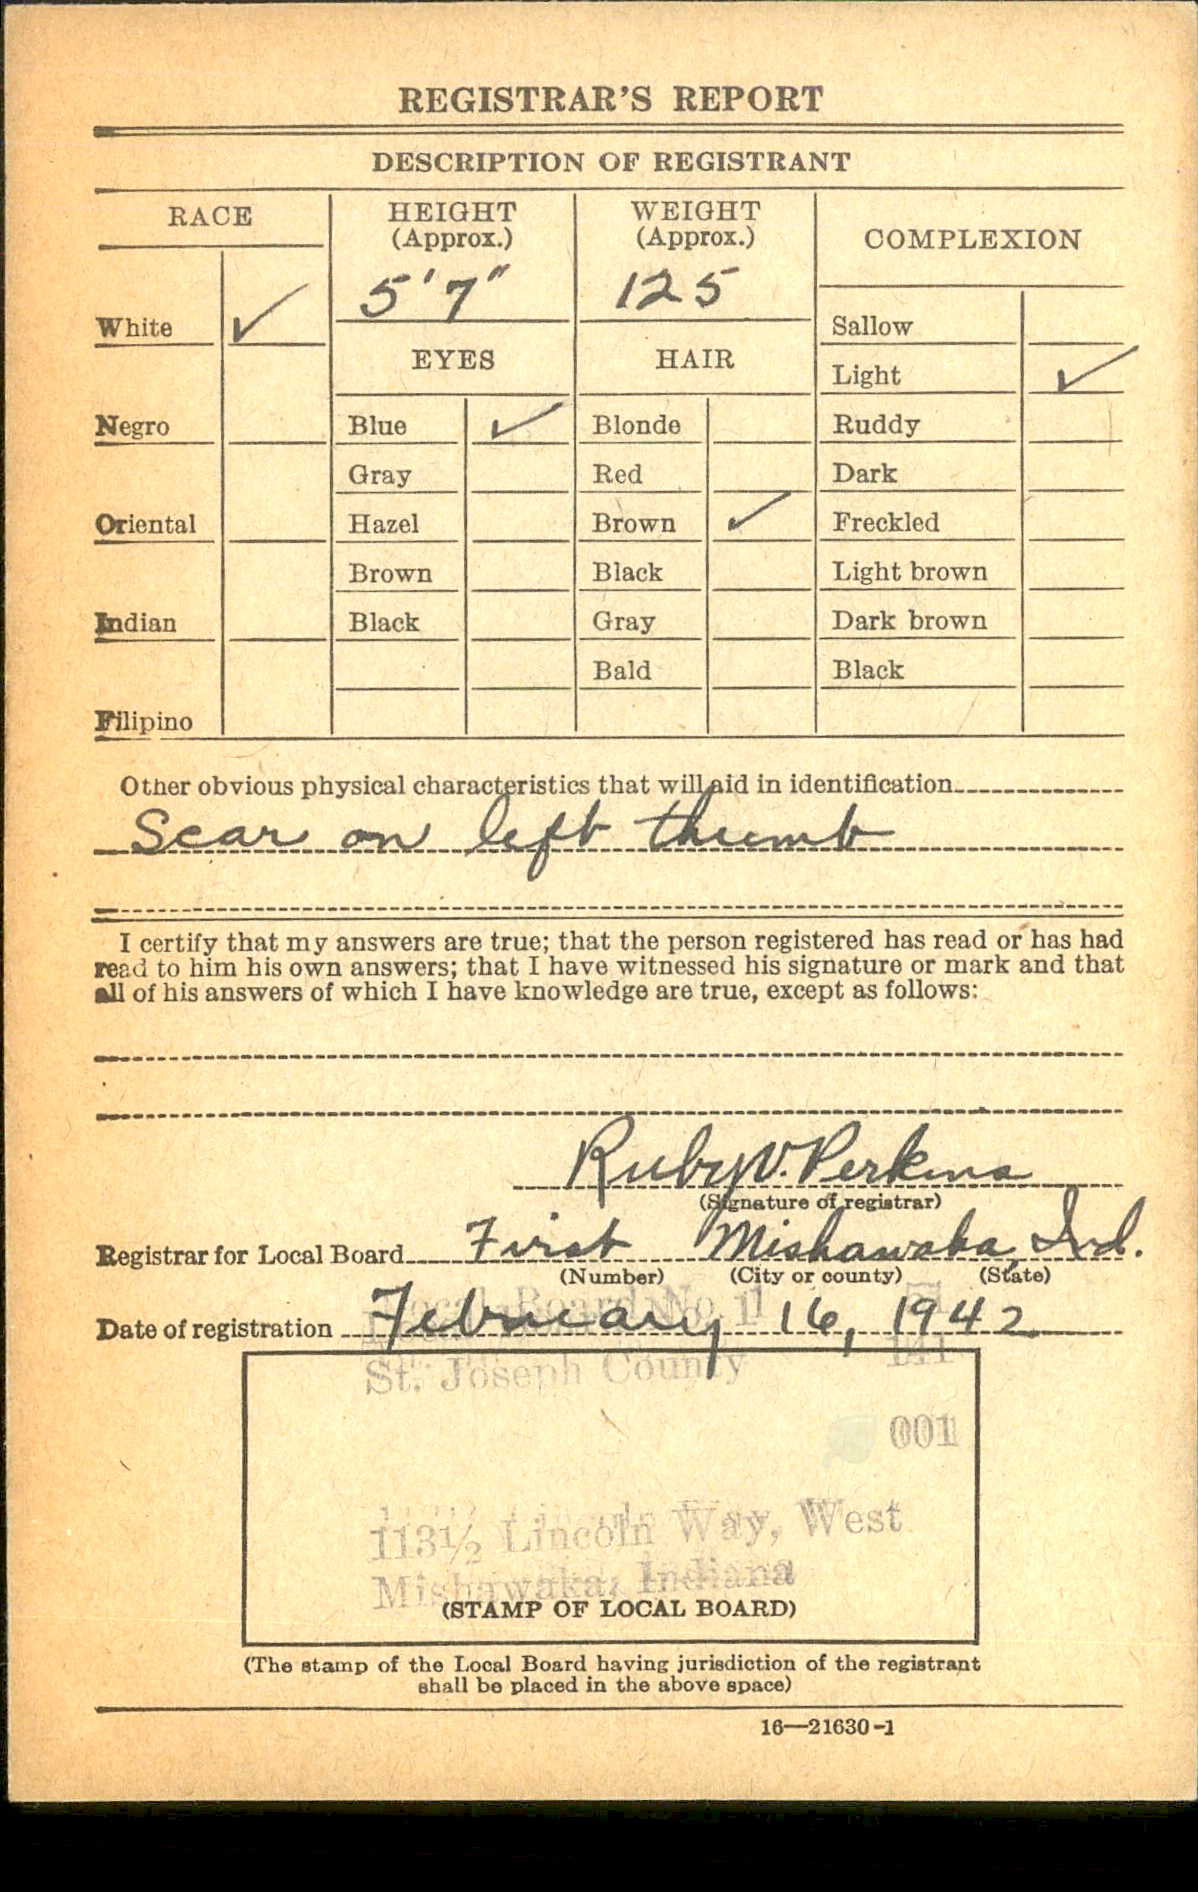 REGISTRAR'S REPORT
DESCRIPTION OF REGISTRANT
RACE
HEIGHT
(Approx.)
WEIGHT
(Approx.)
COMPLEXION
5'7"
125
White ✓
Sallow
EYES
HAIR
Light ✓
Negro
Blue ✓
Blonde
Ruddy
Gray
Red
Dark
Oriental
Hazel
Brown ✓
Freckled
Brown
Black
Light brown
Indian
Black
Gray
Dark brown
Bald
Black
Filipino
Other obvious physical characteristics that will aid in identification
Scar on left thumb
I certify that my answers are true; that the person registered has read or has had
read to him his own answers; that I have witnessed his signature or mark and that
all of his answers of which I have knowledge are true, except as follows:
Ruby V. Perkins
(Signature of registrar)
Registrar for Local Board First Mishawaka, Ind.
(Number) (City or county) (State)
Local Board No. 1
Date of registration February 16, 1942
St. Joseph County 141
001
113½ Lincoln Way, West
Mishawaka, Indiana
(STAMP OF LOCAL BOARD)
(The stamp of the Local Board having jurisdiction of the registrant
shall be placed in the above space)
16—21630-1